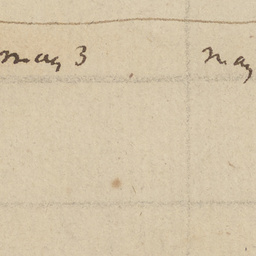 may 3 may